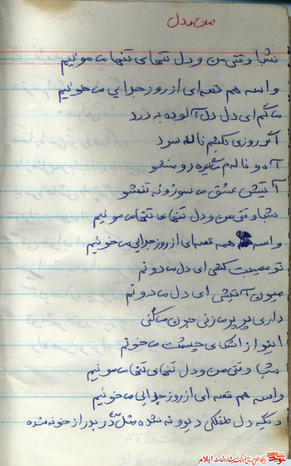 من و دل
شبا وقتی من و دل تنهای تنها می مونیم
واسه هم قصه ای از روز جدایی می خونیم
می گم ای دل دل آلوده به درد
آخه روزی بکنم ناله سرد
آه و ناله م
آتیش عشق می سوزونه تنمو
شبا وقتی من و دل تنهای تنها می مونیم
واسه هم قصه ای از روز جدایی می خونیم
تو مصیبت کشی ای دل می دونم
میون آتیشی ای دل می دونم
داری پر پر می زنی جون می کنی
اینو از اشکای چشمت می خونم
شبا وقتی من و دل تنهای تنها می مونیم
واسه هم قصه ای از روز جدایی می خونیم
دیگه دل طفلکی دیوونه شده مثل من در بدر از خونه شده